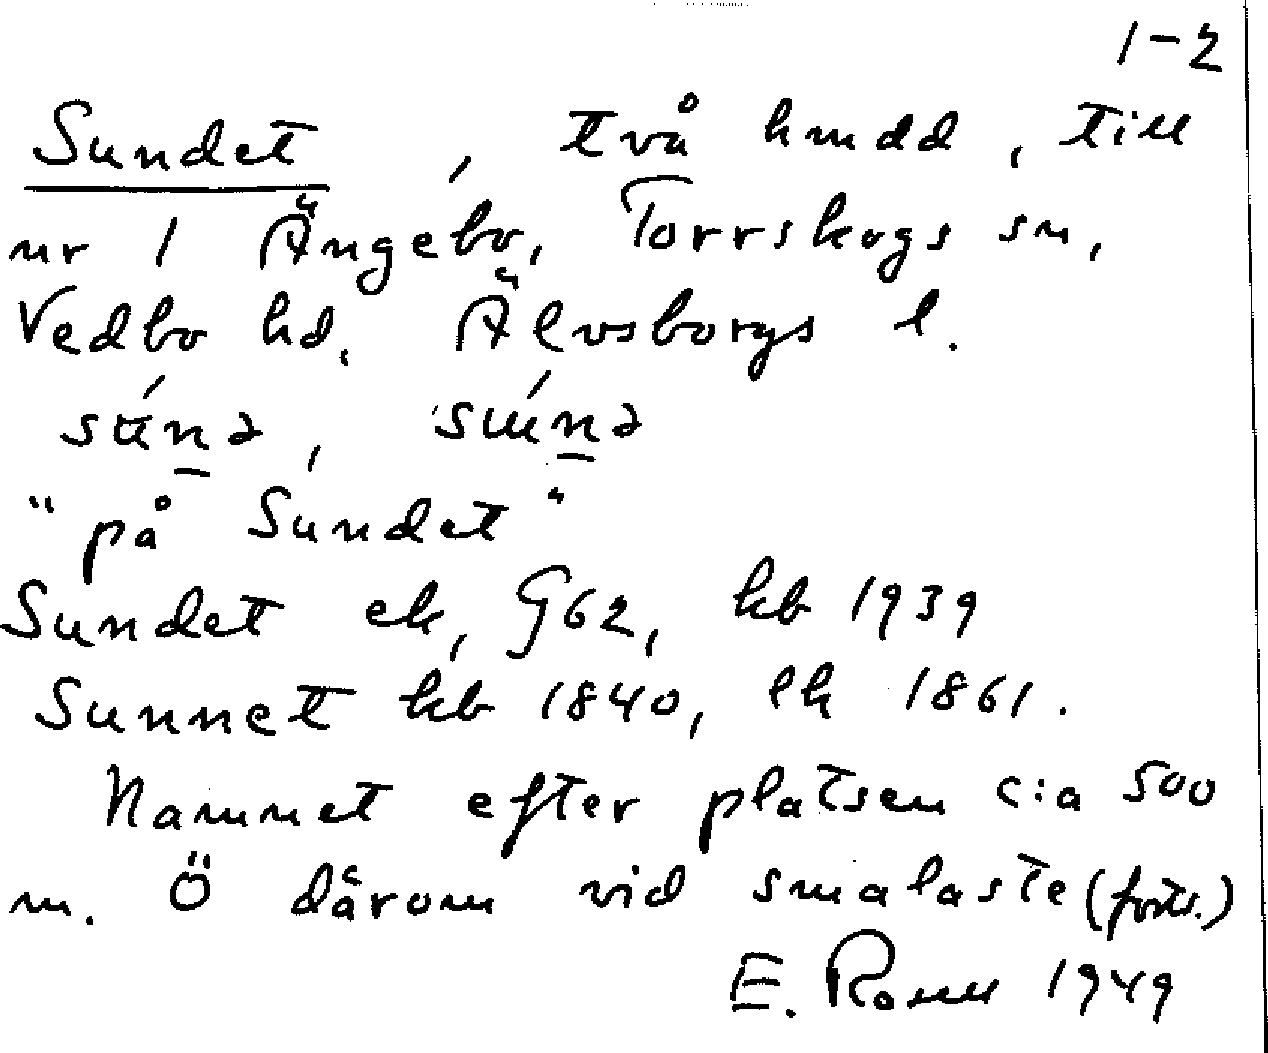 1-2
Sundet, två hmdd, till
nr 1 Ängebo, Torrskogs sn,
Vedbo hd. Älvsborgs l.
"på Sundet"
Sundet ek, G62, kb 1939
Sunnet kb 1840, lk 1861.
Namnet efter platsen c:a 500
m. Ö därom vid smalaste (forts.)
E. 1949